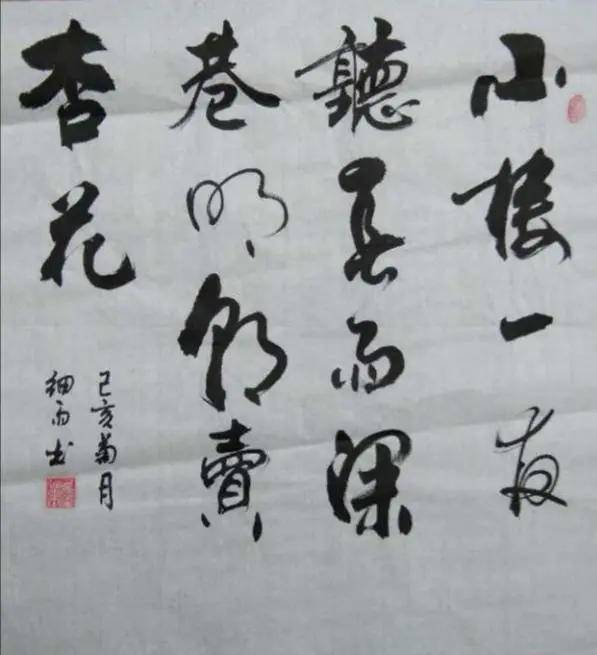 小楼一夜
聽春雨深
巷明朝賣
杏花
己亥菊月
细雨书